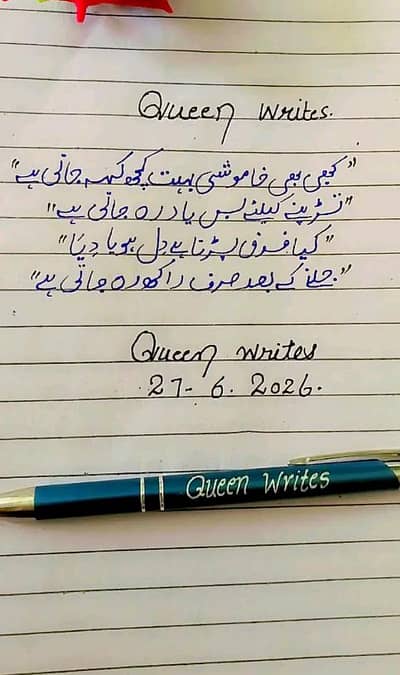 Queen writes.
"کبھی بھی خاموشی بہت کچھ کہہ جاتی ہے"
"تڑپنے کیلئے بس یاد رہ جاتی ہے"
"کیا فرق پڑتا ہے دِل ہو یا دِیّا"
"جلنے کے بعد صرف راکھ رہ جاتی ہے"
Queen writes
27-6.2026.
Queen Writes